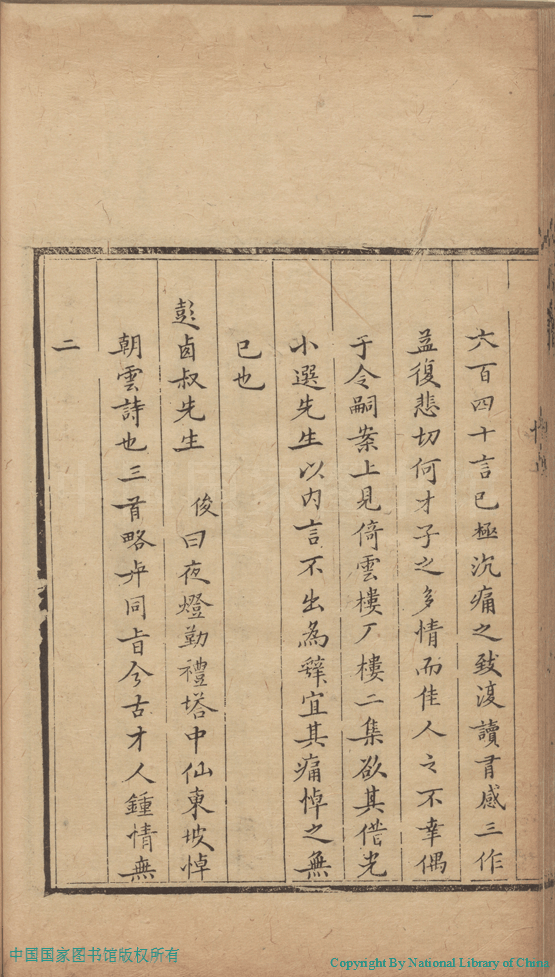 六百四十言已極沉痛之致復讀有感三作
益復悲切何才子之多情而佳人之不幸偶
于令嗣案上見倚雲樓厂樓二集欲其借光
小選先生以内言不出為辭宜其痛悼之無
已也
彭卤叔先生　後曰夜燈勤禮塔中仙東坡悼
朝雲詩也三首略㡳同旨今古才人鍾情無
二
中国国家图书馆版权所有
Copyright By National Library of China